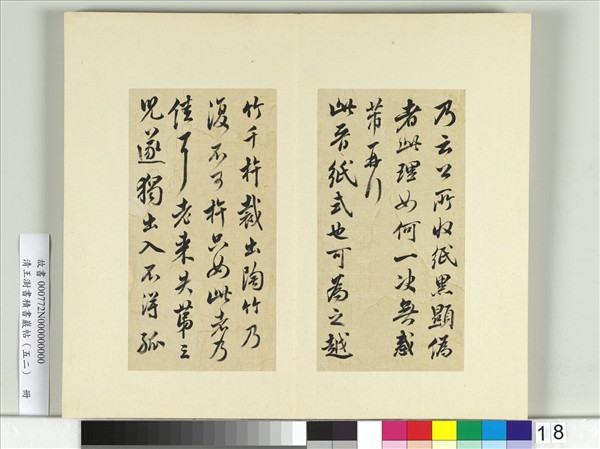 乃云公所收紙黑顯偽
者此理如何一決無惑
芾再行
此晉紙式也可為之越
竹千杵裁出陶竹乃
復不可杵只如此者乃
佳耳老來失第三
兒遂獨出入不得孤
故書 000772N000000000
清王澍書積書巖帖（五二） 冊
18